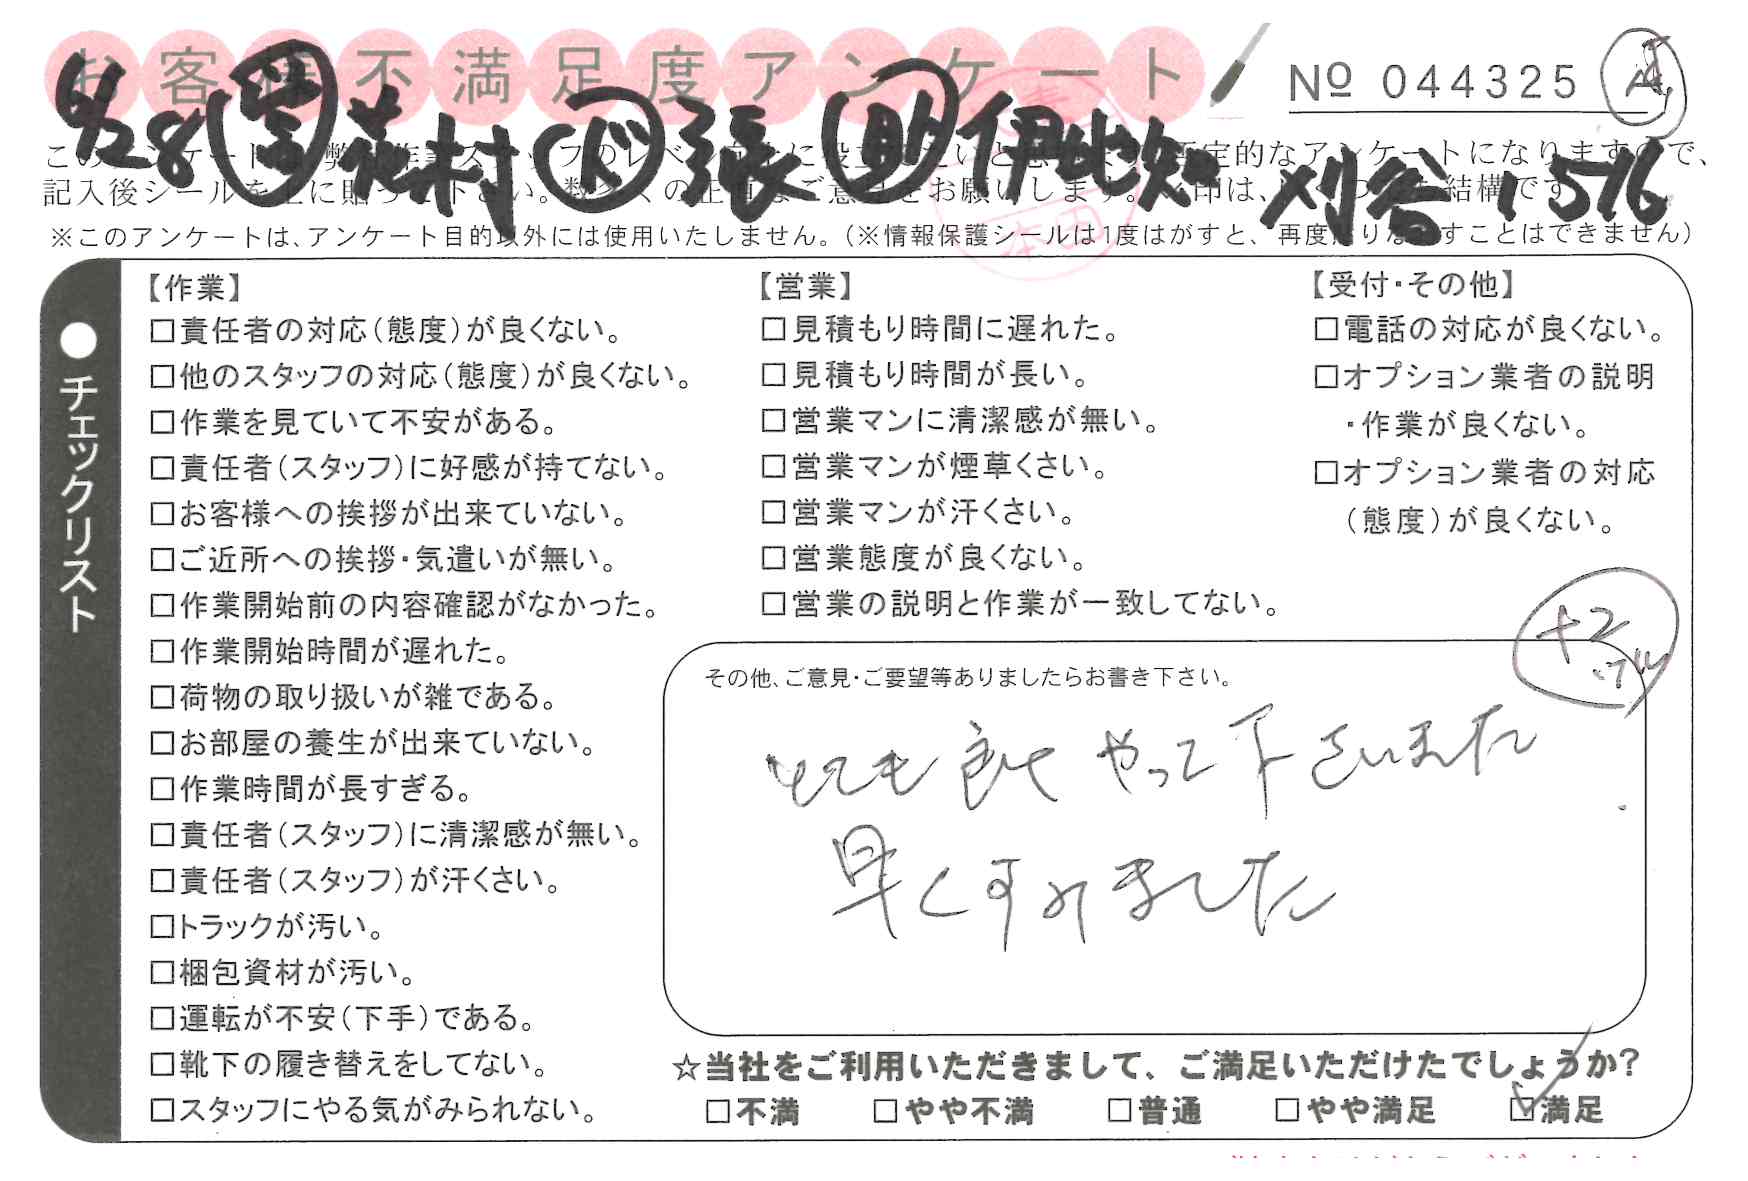 お客様不満足度アンケート
No 044325
6/28 営 花村 ド 張 助 伊比知 刈谷 1576
※このアンケートは、アンケート目的以外には使用いたしません。(※情報保護シールは1度はがすと、再度貼りなおすことはできません)
●チェックリスト
【作業】
□責任者の対応(態度)が良くない。
□他のスタッフの対応(態度)が良くない。
□作業を見ていて不安がある。
□責任者(スタッフ)に好感が持てない。
□お客様への挨拶が出来ていない。
□ご近所への挨拶・気遣いが無い。
□作業開始前の内容確認がなかった。
□作業開始時間が遅れた。
□荷物の取り扱いが雑である。
□お部屋の養生が出来ていない。
□作業時間が長すぎる。
□責任者(スタッフ)に清潔感が無い。
□責任者(スタッフ)が汗くさい。
□トラックが汚い。
□梱包資材が汚い。
□運転が不安(下手)である。
□靴下の履き替えをしてない。
□スタッフにやる気がみられない。
【営業】
□見積もり時間に遅れた。
□見積もり時間が長い。
□営業マンに清潔感が無い。
□営業マンが煙草くさい。
□営業マンが汗くさい。
□営業態度が良くない。
□営業の説明と作業が一致してない。
【受付・その他】
□電話の対応が良くない。
□オプション業者の説明
・作業が良くない。
□オプション業者の対応
(態度)が良くない。
+2
その他、ご意見・ご要望等ありましたらお書き下さい。
とても良くやって下さいました
早くすみました
☆当社をご利用いただきまして、ご満足いただけたでしょうか?
□不満 □やや不満 □普通 □やや満足 ☑満足